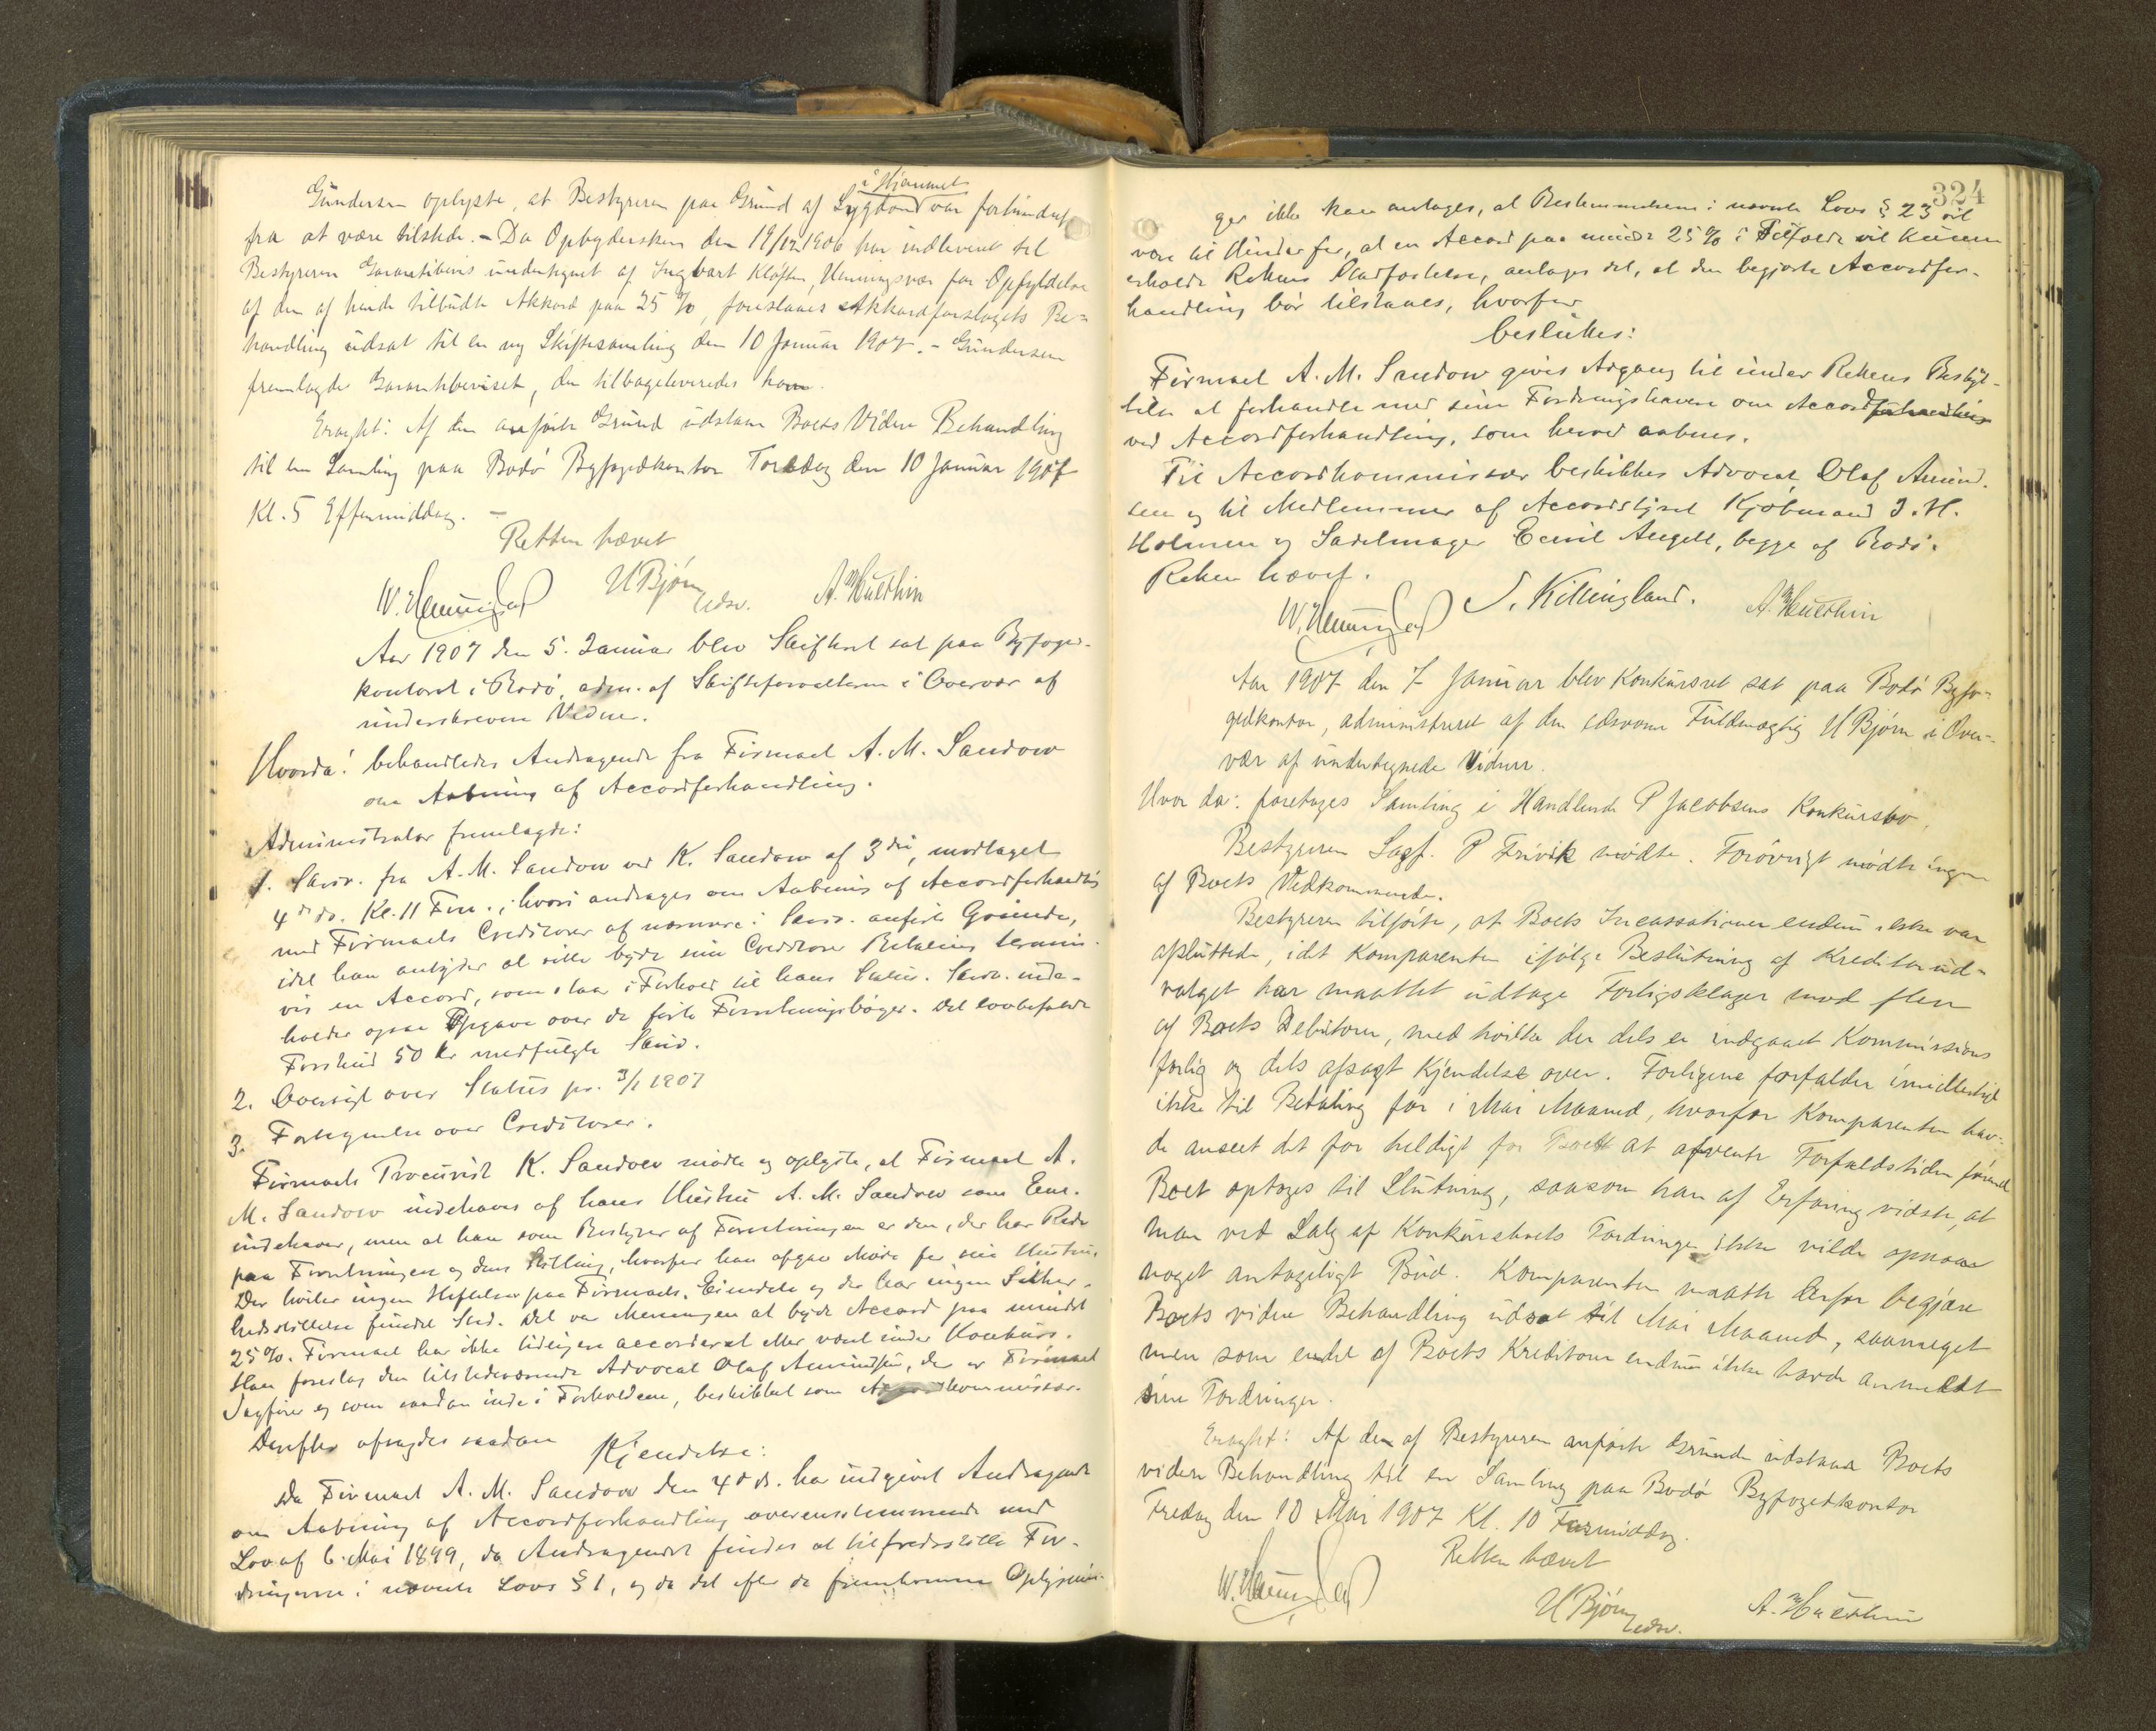 i Hjemmet
Gundersen oplyste, at Bestyreren paa Grund af Sygdom var forhindret
fra at være tilstede. – Da Opbydersken den 19/12 1906 har indleveret til
Bestyreren Garantibevis undertegnet af Ingvart Kløften, Henningsvær for Opfyldelse
af den af hende tilbudte Akkord paa 25 %, foreslaaes Akkordforslagets Be=
handling udsat til en ny Skiftesamling den 10 Januar 1907. – Gundersen
fremlagde Garantibeviset, der tilbageleveredes ham.
Eragtet: Af den anførte Grund udstaar Boets Videre Behandling
til en Samling paa Bodø Byfogedkontor Torsdag den 10 Januar 1907
Kl. 5 Eftermiddag. –
Retten hævet
U Bjørn
edsv.
Aar 1907 den 5. Januar blev Skifteret sat paa Byfoged-
kontoret i Bodø, adm. af Skifteforvalteren i Overvær af
underskrevne Vidner.
Hvorda: behandledes Andragende fra Firmaet A. M. Sandow
om Aabning af Accordforhandling.
Administrator fremlagde:
1. Skriv. fra A. M. Sandow ved K. Sandow af 3die, modtaget
4de ds. Kl. 11 Fm., hvori andrages om Aabning af Accordforhandlg
med Firmaets Creditorer af nærmere i Skriv. anførte Grunde,
idet han antyder at ville byde sine Creditorer Betaling termin-
vis en Accord, som staar i Forhold til hans Status. Skriv. inde-
holder ogsaa Opgave over de førte Forretningsbøger. Det lovbefalede
Forskud 50 kr medfulgte Skriv.
2. Oversigt over Status pr. 3/1 1907
3. Fortegnelse over Creditorer.
Firmaets Procurist K. Sandow mødte og oplyste, at Firmaet A.
M. Sandow indehaves af hans Hustru A. M. Sandow som Ene-
indehaver, men at han som Bestyrer af Forretningen er den, der har Rede
paa Forretningen og dens Stilling, hvorfor han afgav Møde for sin Hustru.
Der hviler ingen Heftelser paa Firmaets Eiendele og der har ingen Sikker-
hedsstillelse fundet Sted. Det var Meningen at byde Accord paa mindst
25 %. Firmaet har ikke tidligere accorderet eller været under Konkurs.
Han foreslog den tilstedeværende Advocat Olaf Amundsen, der er Firmaets
Sagfører og som saadan inde i Forholdene, beskikket som Accordkommissær.
Derefter afsagdes saadan Kjendelse:
Da Firmaet A. M. Sandow den 4de ds. har indgivet Andragende
om Aabning af Accordforhandling overensstemmende med
Lov af 6. Mai 1899, da Andragendet findes at tilfredsstille For-
dringerne i nævnte Lovs § 1, og da det efter de fremkomne Oplysnin-
324
ger ikke kan antages, at Bestemmelsen i nævnte Lovs § 23 vil
være til Hinder for, at en Accord paa mindst 25 % i Tilfælde vil kunne
erholde Rettens Stadfæstelse, antages det, at den begjærte Accordfor-
handling bør tilstaaes, hvorfor
besluttes:
Firmaet A. M. Sandow gives Adgang til under Rettens Beskyt-
telse at forhandle med sine Fordringshavere om Accord forhandling
ved Accordforhandling, som herved aabnes.
Til Accordkommissær beskikkes Advocat Olaf Amund-
sen og til Medlemmer af Accordstyret Kjøbmand J. H.
Holmen og Sadelmager Emil Angell, begge af Bodø.
Retten hævet.
S. Killingland.
Aar 1907 den 7 Januar blev Konkursret sat paa Bodø Byfo=
gedkontor, administreret af den edsvorne Fuldmægtig U Bjørn i Over-
vær af undertegnede Vidner.
Hvor da: foretoges Samling i Handlende P Jacobsens Konkursbo.
Bestyreren Sagf. P Frivik mødte. Forøvrigt mødte ingen
af Boets Vedkommende.
Bestyreren tilførte, at Boets Incassationer endnu ikke var
afsluttede, idet Komparenten ifølge Beslutning af Kreditorud=
valget har maattet udtage Forligsklager mod flere
af Boets Debitorer, med hvilke der dels er indgaaet Kommissions
forlig og dels afsagt Kjendelse over. Forligene forfalder imidlertid
ikke til Betaling før i Mai Maaned, hvorfor Komparenten hav-
de anseet det for heldigt for Boet at afvente Forfaldstiden førend
Boet optoges til Slutning, saasom han af Erfaring vidste, at
man ved Salg af Konkursboets Fordringer ikke vilde opnaae
noget antageligt Bud. Komparenten maatte derfor begjære
Boets videre Behandling udsat til Mai Maaned, saameget
men som endel af Boets Kreditorer endnu ikke havde anmeldt
sine Fordringer.
Eragtet: Af den af Bestyreren anførte Grunde udstaar Boets
videre Behandling til en Samling paa Bodø Byfogedkontor
Fredag den 10 Mai 1907 Kl. 10 Formiddag.
Retten hævet
U Bjørn
edsv.